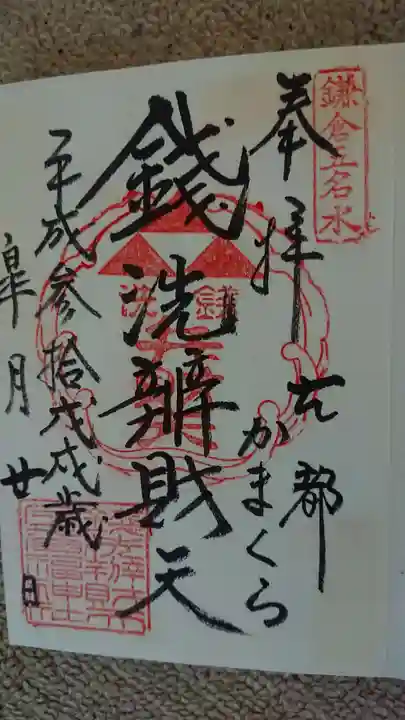 鎌倉五名水
奉拝 古都
かまくら
錢洗辨財天
平成参拾戊戌歳
皐月廿日